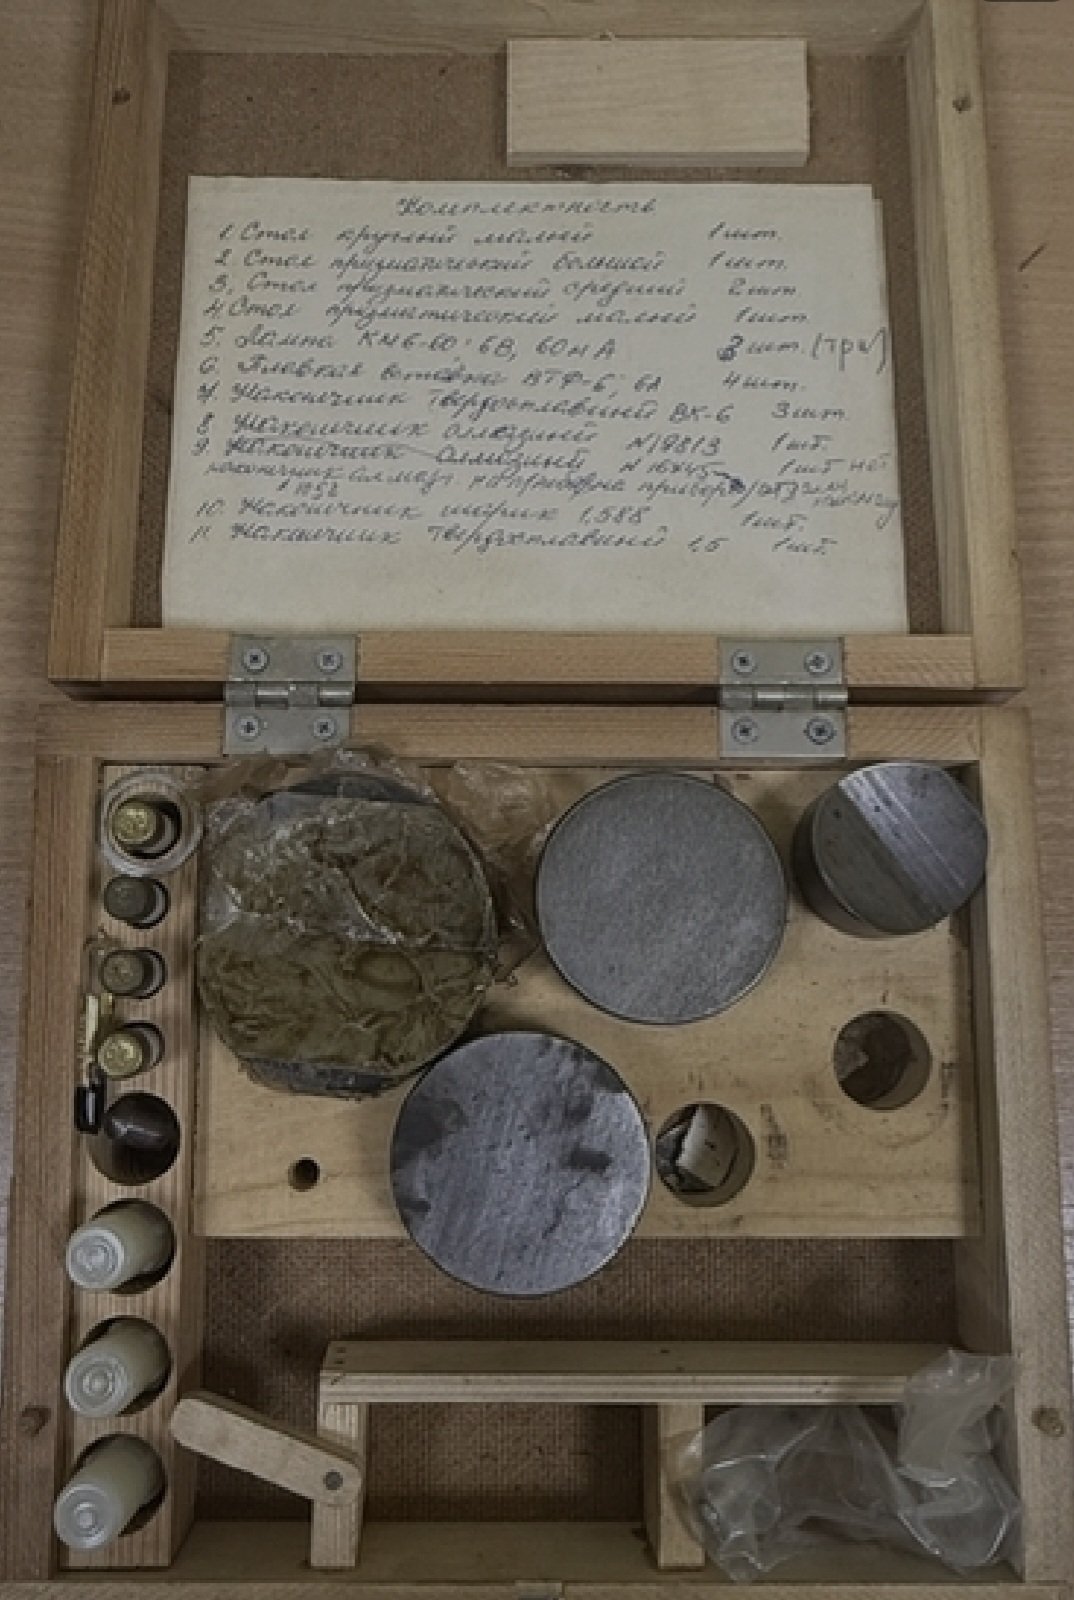 Комплектность
1. Стол круглый малый 1 шт.
2 Стол призматический большой 1 шт.
3. Стол призматический средний 2 шт.
4. Стол призматический малый 1 шт.
5. Лампа КМ6-60 6В, 60мА 3 шт. (три)
6. Плавкая вставка ВТФ-6, 6А 4 шт.
7. Наконечник твердосплавный ВК-6 3 шт.
8 Наконечник алмазный N19813 1 шт.
9. Наконечник алмазный N16845 1 шт нет
наконечник алмазн
10. Наконечник шарик 1,588 1 шт.
11. Наконечник твердосплавный 1,5 1 шт.